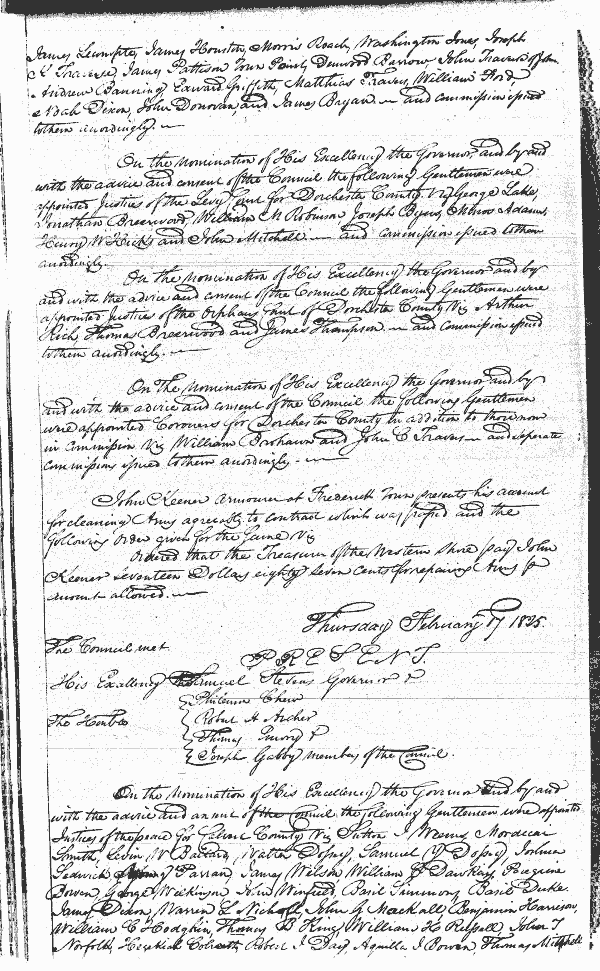 James Lecompte, James Houston, Morris Roach, Washington Jones, Joseph
K Traverse, James Pattison Town Point, Denwood Barrow, John Travers of John
Andrew Banning, Edward Griffith, Matthias Travers, William Ford
Noah Dixon, John Donovan, and James Bryan — and commission issued
to them accordingly. —
On the nomination of His Excellency the Governor, and by and
with the advice and consent of the Council the following Gentlemen were
appointed Justices of the Levy Court for Dorchester County Viz George Lake,
Jonathan Breerwood, William M Robinson Joseph Byus, Adams
Henry W Hicks and John Mitchell — and commission issued to them
accordingly. —
On the nomination of His Excellency the Governor and by
and with the advice and consent of the Council the following Gentlemen were
appointed Justices of the Orphans Court of Dorchester County Viz Arthur
Rich, Thomas Breerwood and James Thompson — and commission issued
to them accordingly. —
On the nomination of His Excellency the Governor and by
and with the advice and consent of the Council the following Gentlemen
were appointed Coroners for Dorchester County in addition to those now
in commission Viz William and John C Travers — and seperate
commissions issued to them accordingly. —
John Keener armourer at Frederick Town presents his account
for cleaning Arms agreeably to contract which was passed and the
following order given for the same Viz
Ordered that the Treasurer of the Western Shore pay John
Keener seventeen Dollars eighty seven cents for repairing Arms p
amount allowed. —
Thursday February 17 1825.
The Council met
PRESENT.
His Excellency Samuel Stevens Governor &
The Honble
Philemon Chew
Robert H Archer
Thomas Emory &
Joseph Gabby members of the Council.
On the nomination of His Excellency the Governor and by and
with the advice and consent of the Council the following Gentlemen were appointed
Justices of the peace for Calvert County Viz Sutton I Weems, Mordecai
Smith, Levin W Ballard, Walter Dorsey, Samuel Y Dorsey Joshua
Sedwick, Young Parran, James Wilson William D Dawkins,
Bowen, George Wilkinson John Winfield, Basil Simmons Basil Duke
James Dixon, Warren L Nicholls, John G Mackall, Benjamin Harrison,
William C Hodgkin, Thomas B King, William H Russell, John T
Norfolk, Hezekiah Robert I Day, Aquilla I Bowen, Thomas Mitchell